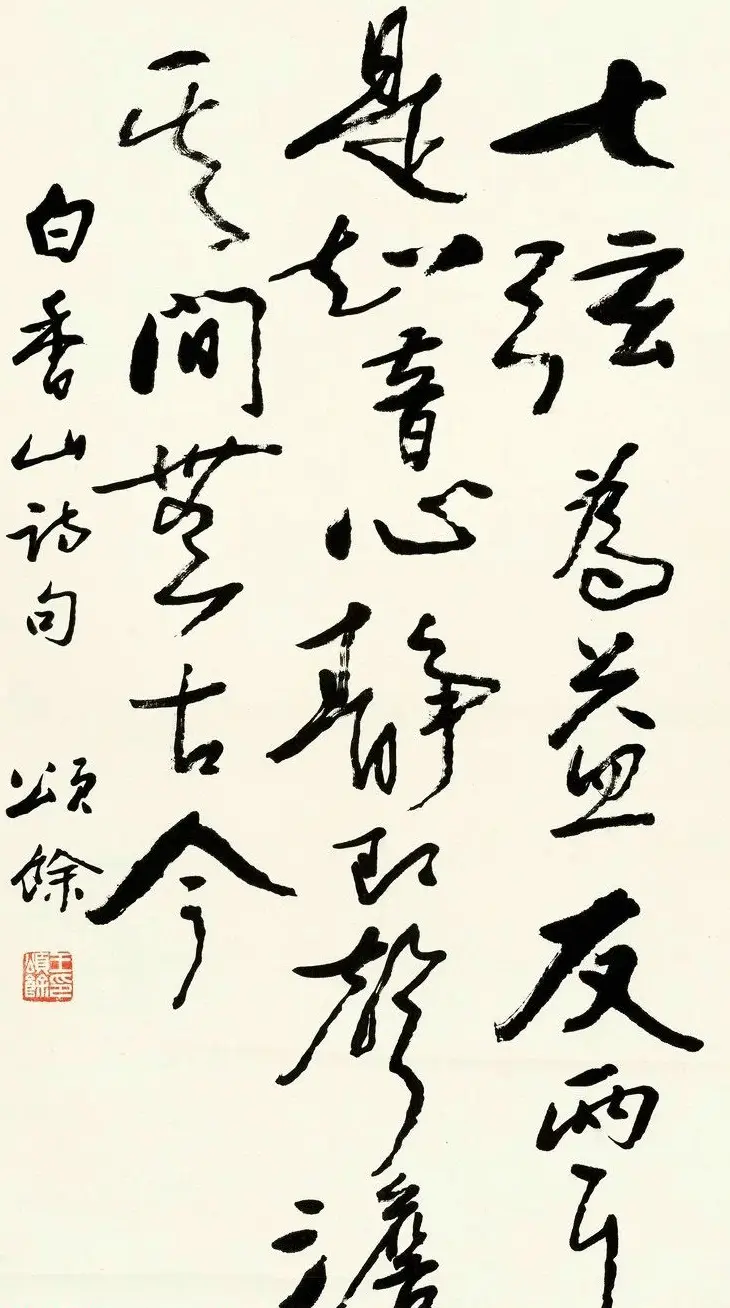 七弦為益友兩耳
是知音心静即聲澹
其間無古今
白香山詩句 頌餘
王印頌餘